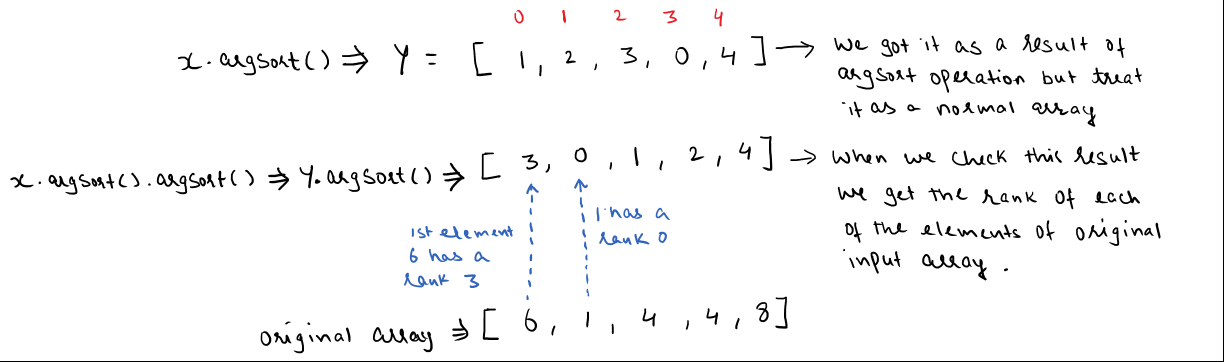 0 1 2 3 4
x.argsort() ⇒ Y = [ 1, 2, 3, 0, 4 ] → we got it as a result of
argsort operation but treat
it as a normal array
x.argsort().argsort() ⇒ Y.argsort() ⇒ [ 3, 0, 1, 2, 4 ] → when we check this result
we get the rank of each
of the elements of original
input array.
1st element
6 has a
rank 3
1 has a
rank 0
original array ⇒ [ 6, 1, 4, 4, 8 ]